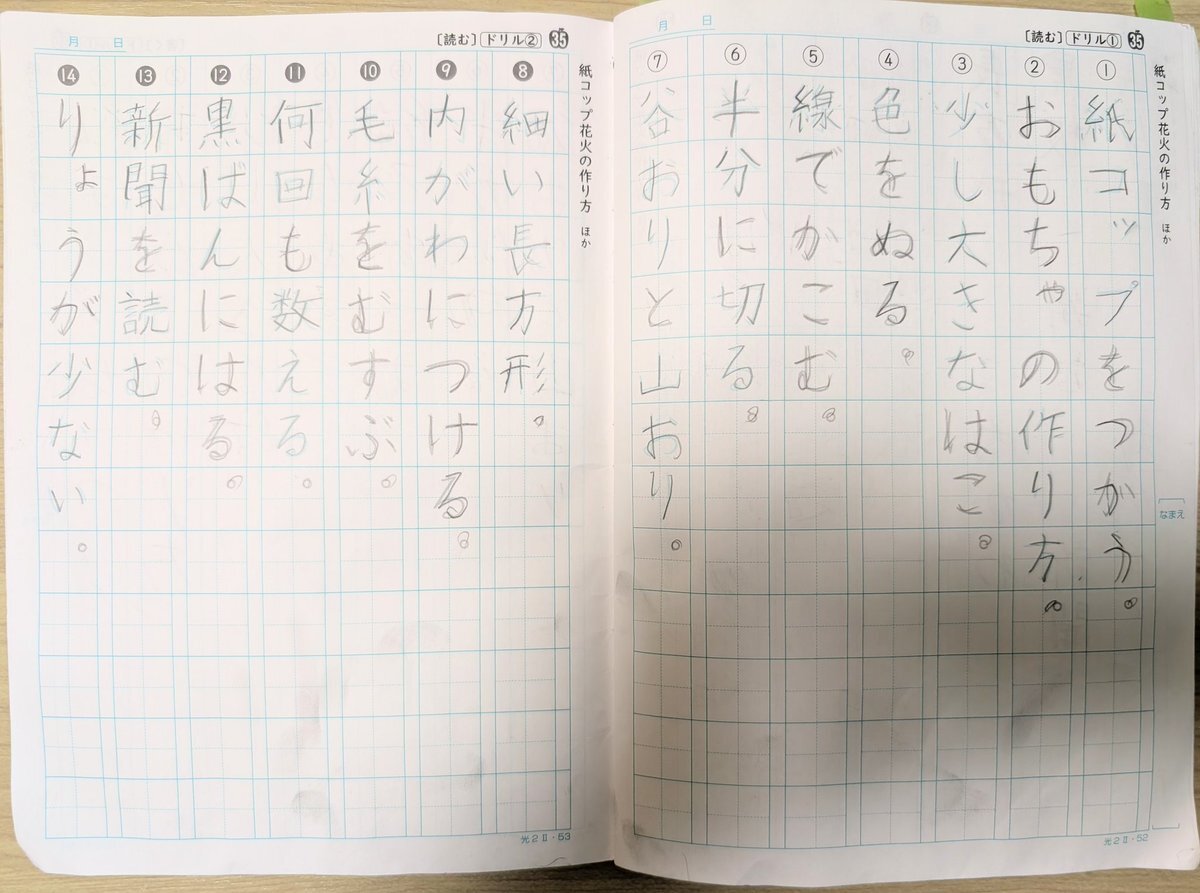 月 日
〔読む〕 ドリル① 35
紙コップ花火の作り方 ほか
なまえ
① 紙コップをつかう。
② おもちゃの作り方。
③ 少し大きなはこ。
④ 色をぬる。
⑤ 線でかこむ。
⑥ 半分に切る。
⑦ 谷おりと山おり。
光2Ⅱ・52
月 日
〔読む〕 ドリル② 35
紙コップ花火の作り方 ほか
⑧ 細い長方形。
⑨ 内がわにつける。
⑩ 毛糸をむすぶ。
⑪ 何回も数える。
⑫ 黒ばんにはる。
⑬ 新聞を読む。
⑭ りょうが少ない。
光2Ⅱ・53